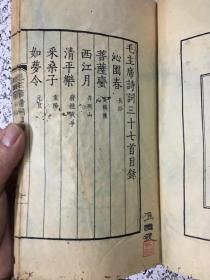 毛主席詩詞三十七首目錄
沁園春
長沙
菩薩蠻
黃鶴樓
西江月
井岡山
清平樂
蔣桂戰爭
采桑子
重陽
如夢令
元旦